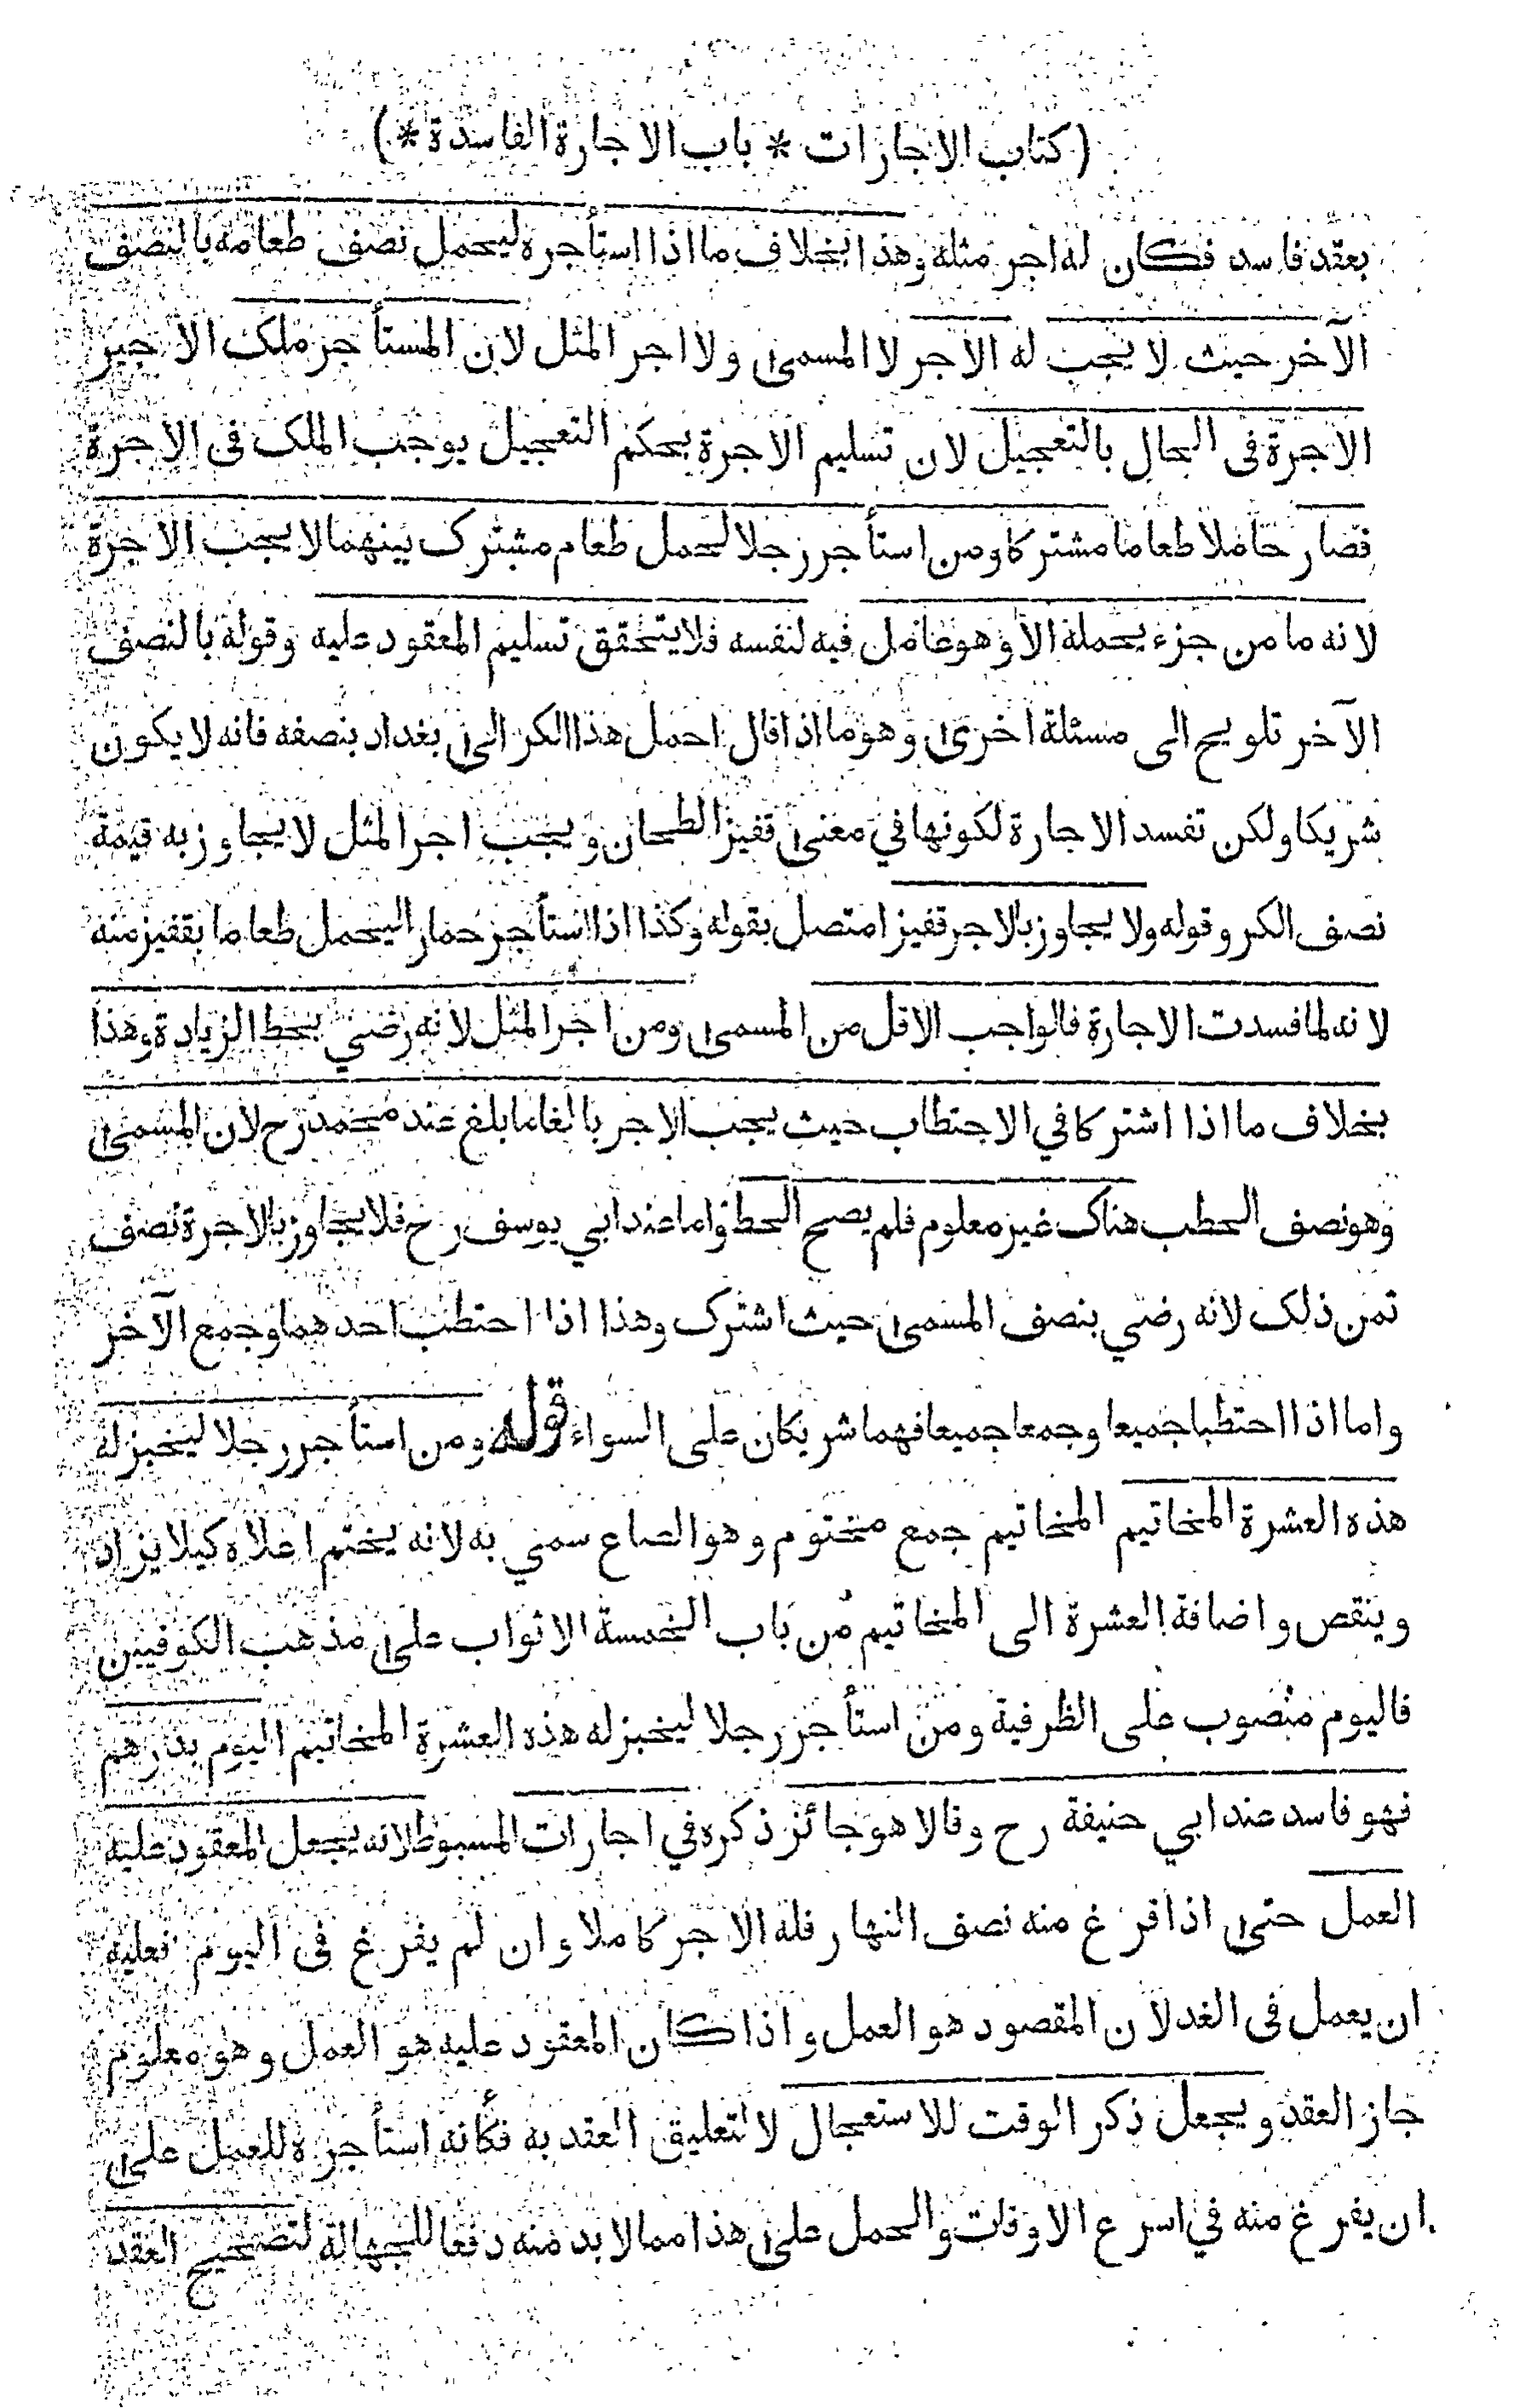 (كتاب الاجارات * باب الاجارة الفاسدة *)
بعقد فاسد فكان له اجر مثله وهذا بخلاف ما اذا استأجره ليحمل نصف طعامه بالنصف
الآخر حيث لا يجب له الاجر لا المسمى ولا اجر المثل لان المستأجر ملك الاجير
الاجرة في الحال بالتعجيل لان تسليم الاجرة بحكم التعجيل يوجب الملك في الاجرة
فصار حاملا طعاما مشتركا ومن استأجر رجلا لحمل طعام مشترك بينهما لا يجب الاجرة
لانه ما من جزء يحمله الا وهو عامل فيه لنفسه فلا يتحقق تسليم المعقود عليه وقوله بالنصف
الآخر تلويح الى مسئلة اخرى وهو ما اذا قال احمل هذا الكر الى بغداد بنصفه فانه لا يكون
شريكا ولكن تفسد الاجارة لكونها في معنى قفيز الطحان ويجب اجر المثل لا يجاوز به قيمة
نصف الكر وقوله ولا يجاوز بالاجر قفيزا متصل بقوله وكذا اذا استأجر حمارا ليحمل طعاما بقفيز منه
لانه لما فسدت الاجارة فالواجب الاقل من المسمى ومن اجر المثل لانه رضي بحط الزيادة وهذا
بخلاف ما اذا اشتركا في الاحتطاب حيث يجب الاجر بالغا ما بلغ عند محمد رح لان المسمى
وهو نصف الحطب هناك غير معلوم فلم يصح الحط واما عند ابي يوسف رح فلا يجاوز بالاجرة نصف
ثمن ذلك لانه رضي بنصف المسمى حيث اشترك وهذا اذا احتطب احدهما وجمع الآخر
واما اذا احتطبا جميعا وجمعا جميعا فهما شريكان على السواء قوله ومن استأجر رجلا ليخبز له
هذه العشرة المخاتيم المخاتيم جمع مختوم وهو الصاع سمي به لانه يختم اعلاه كيلا يزاد
وينقص واضافة العشرة الى المخاتيم من باب الخمسة الاثواب على مذهب الكوفيين
فاليوم منصوب على الظرفية ومن استأجر رجلا ليخبز له هذه العشرة المخاتيم اليوم بدرهم
فهو فاسد عند ابي حنيفة رح وقالا هو جائز ذكره في اجارات المسبوط لانه يجعل المعقود عليه
العمل حتى اذا فرغ منه نصف النهار فله الاجر كاملا وان لم يفرغ في اليوم فعليه
ان يعمل في الغد لان المقصود هو العمل واذا كان المعقود عليه هو العمل وهو معلوم
جاز العقد ويجعل ذكر الوقت للاستعجال لا لتعليق العقد به فكأنه استأجره للعمل على
ان يفرغ منه في اسرع الاوقات والحمل على هذا مما لا بد منه دفعا للجهالة لتصحيح العقد